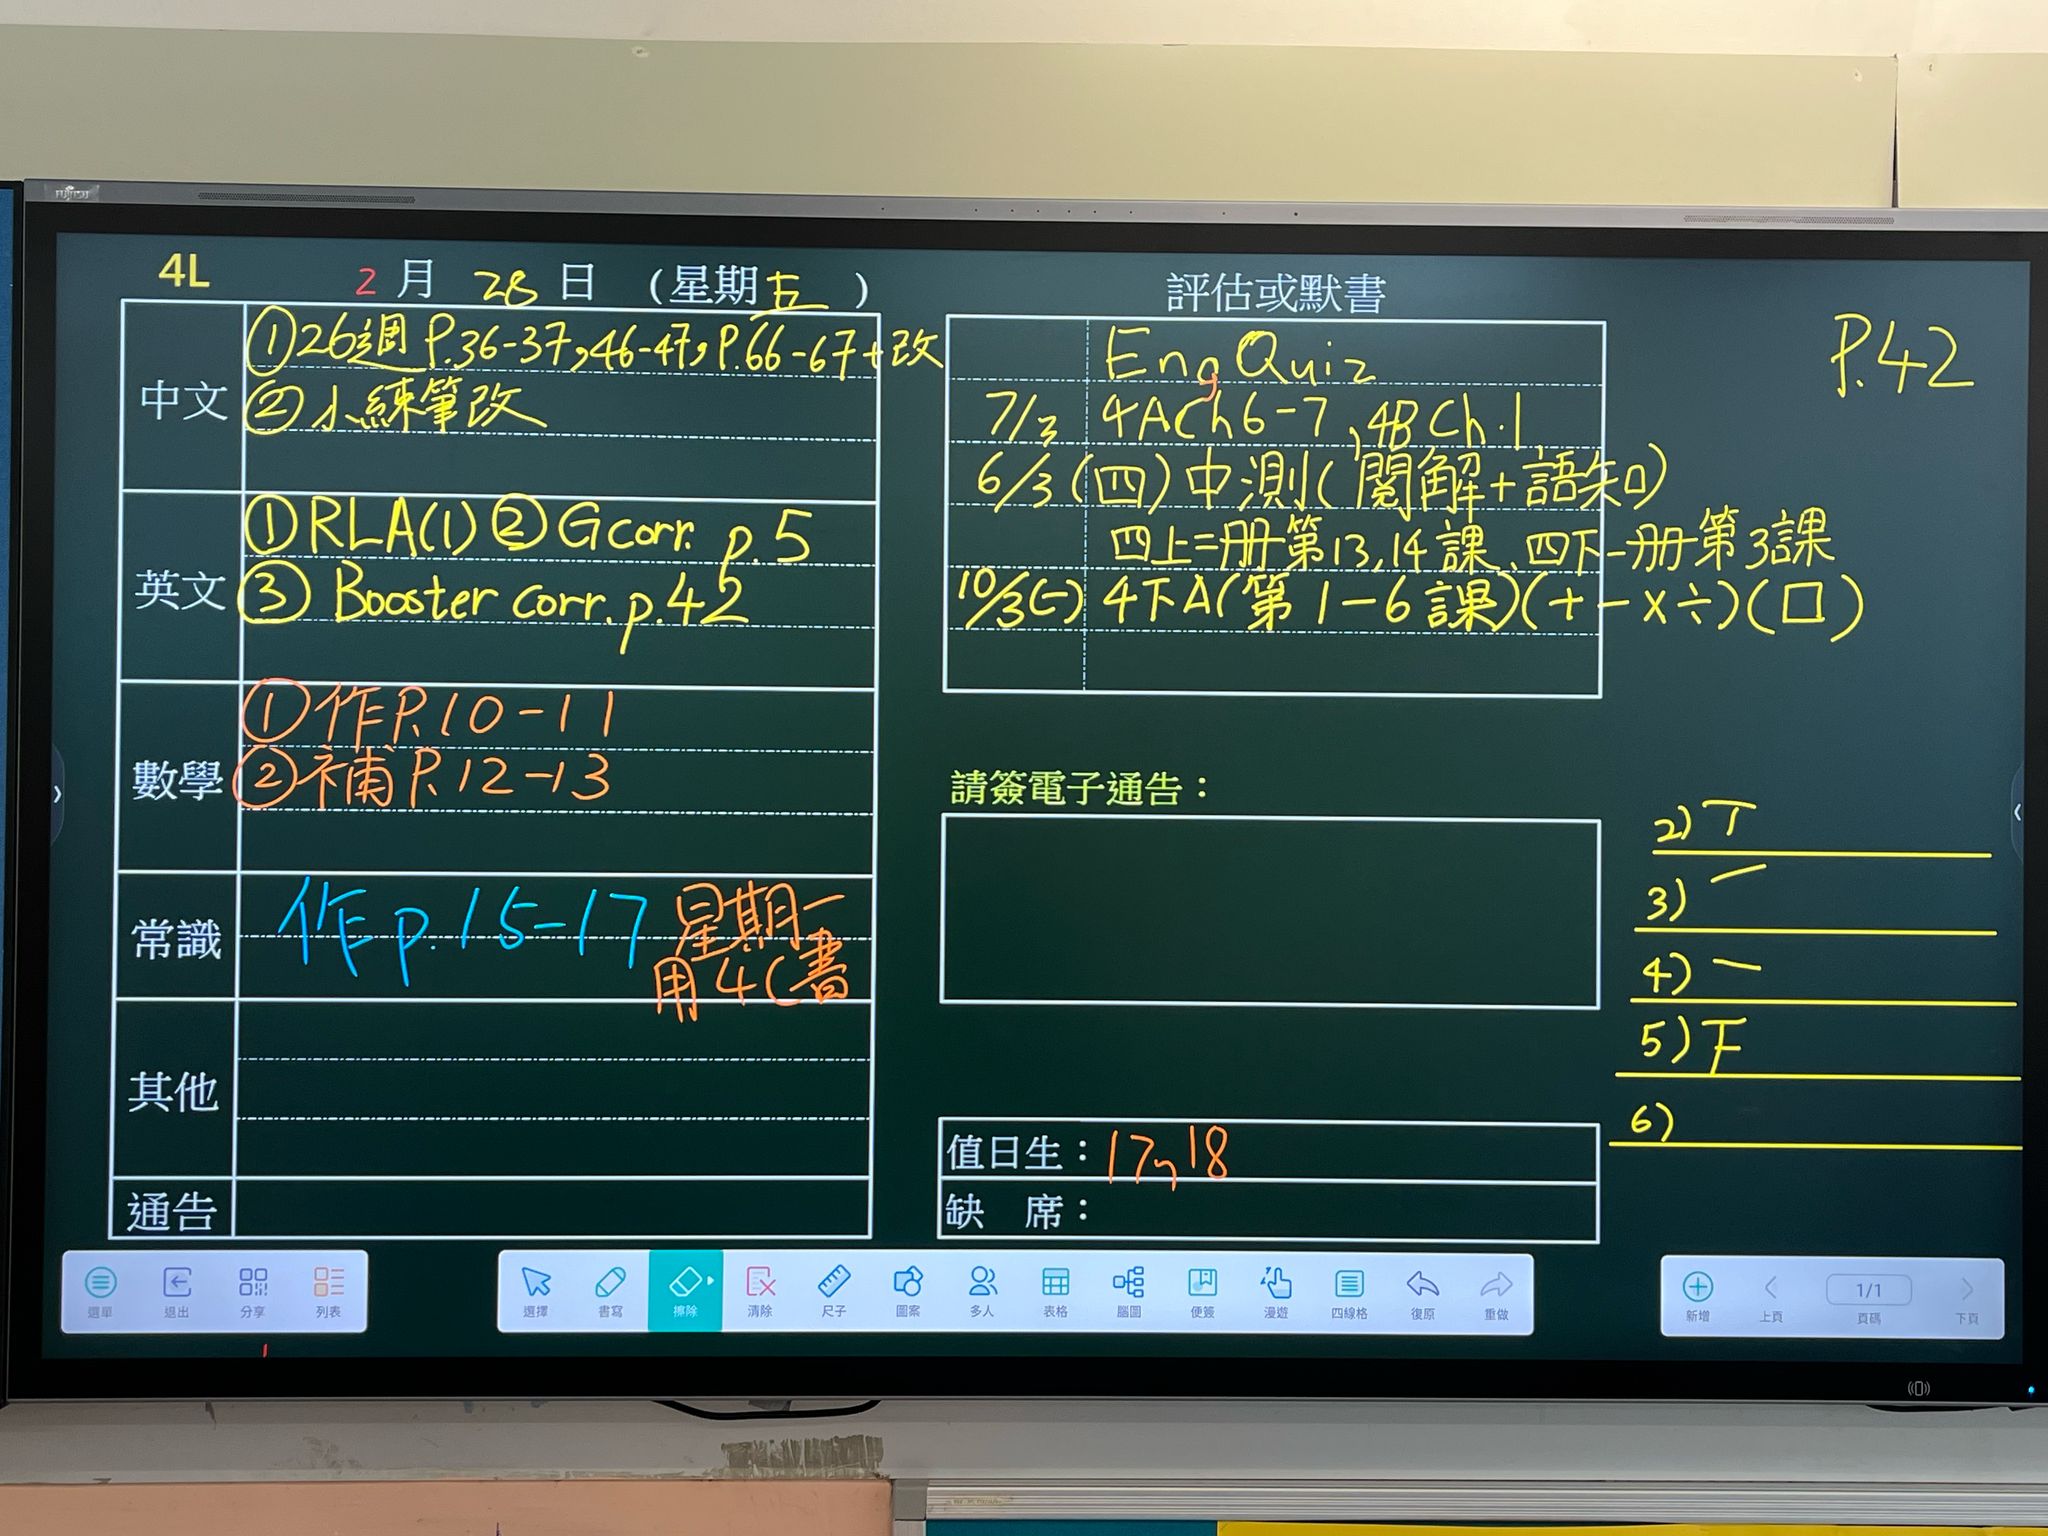 FUJITSU
4L 2月28日（星期五）
中文
①26週 P.36-37,46-47,P.66-67+改
②小練筆改
英文
①RLA(1) ②Gcorr. p.5
③ Booster corr. p.42
數學
①作P.10-11
②補P.12-13
常識
作p.15-17
星期一
用4C書
其他
通告
評估或默書
Eng Quiz
7/3 4A Ch 6-7, 4B Ch.1
6/3(四) 中測(閱解+語知)
四上二册第13,14課、四下一册第3課
10/3(一) 4下A(第1-6課)(+-×÷)(□)
P.42
請簽電子通告：
2) T
3)
4)
5) F
6)
值日生：17,18
缺 席：
選單 退出 分享 列表
選擇 書寫 擦除 清除 尺子 圖案 多人 表格 腦圖 便簽 漫遊 四線格 復原 重做
新增 上頁 1/1 頁碼 下頁